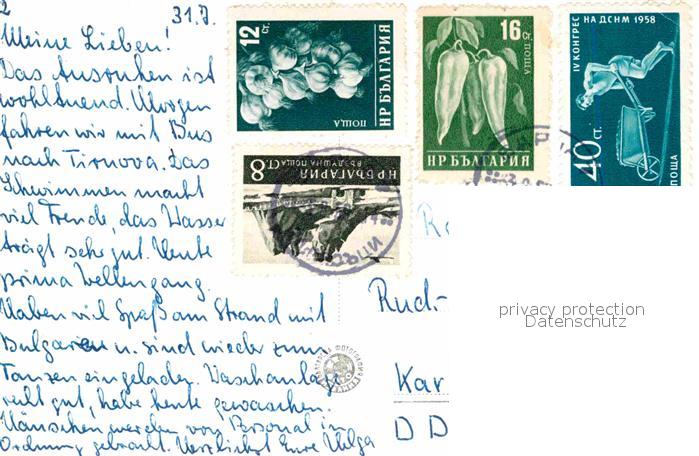 2 31.7.
Meine Lieben!
Das Ausruhen ist
wohltuend. Morgen
fahren wir mit Bus
nach Tirnova. Das
Schwimmen macht
viel Freude, das Wasser
trägt sehr gut. Heute
prima Wellengang.
Haben viel Spaß am Strand mit
Bulgaren u. sind wieder zum
Tanzen eingeladen. Waschanlage
recht gut, habe heute gewaschen.
Hänschen werden vom Personal in
Ordnung gebracht. Herzlichst Eure Helga
12 СТ.
ПОЩА
НР БЪЛГАРИЯ
16 СТ.
ПОЩА
НР БЪЛГАРИЯ
IV КОНГРЕС НА ДСНМ 1958
40 СТ.
ПОЩА
8 СТ.
НР БЪЛГАРИЯ
ВЪЗДУШНА ПОЩА
Rud-
Kar
D D
privacy protection
Datenschutz